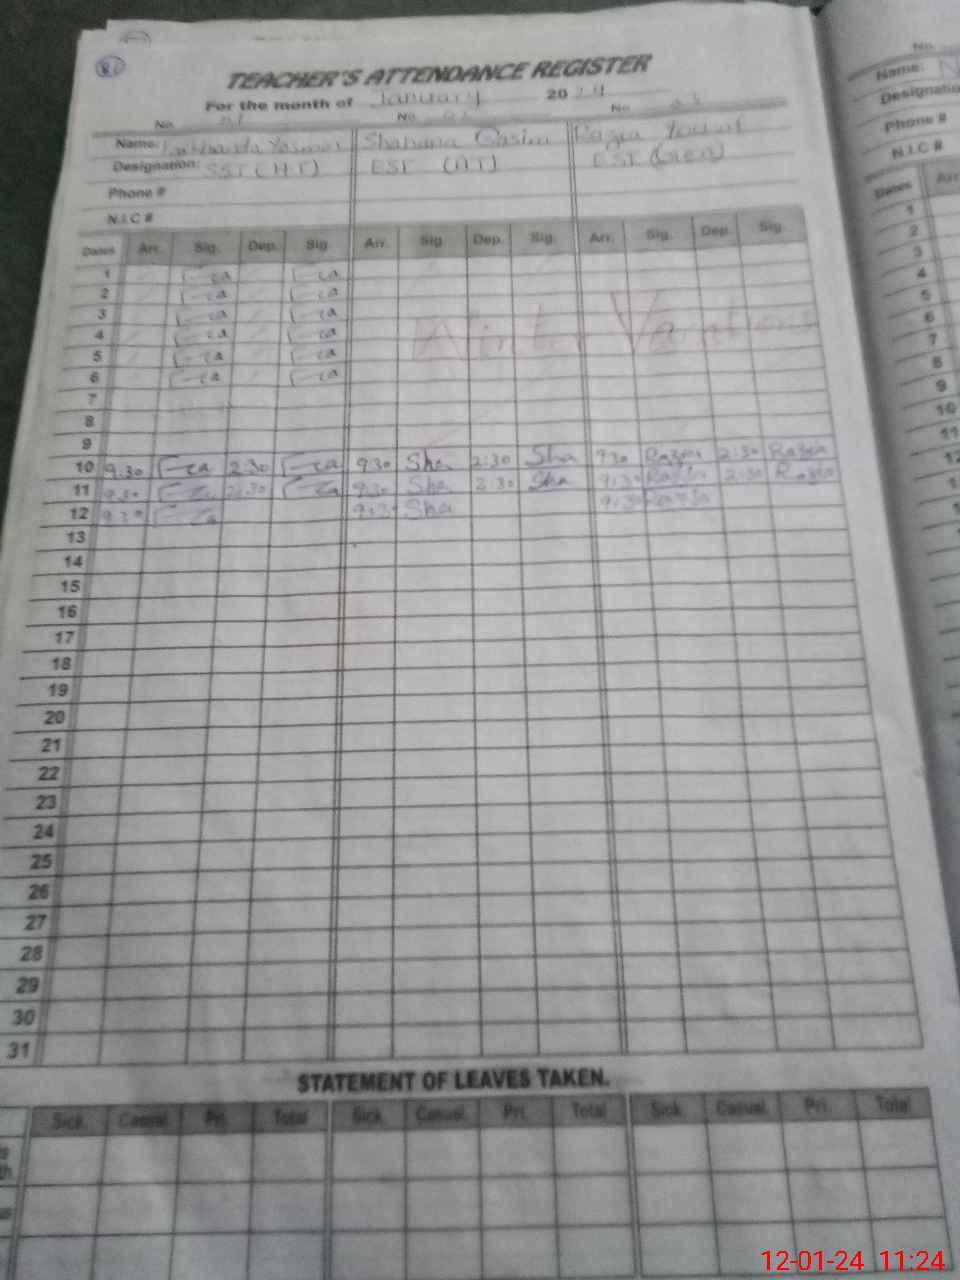 81
TEACHER'S ATTENDANCE REGISTER
For the month of January 2024
No. 01 No. 02 No. 03
Name: Yasmin Shabana Qasim Razia Yousaf
Designation: SST (HT) EST (AT) EST (Gen)
Phone #
N.I.C #
Dates Arr. Sig. Dep. Sig. Arr. Sig. Dep. Sig. Arr. Sig. Dep. Sig.
1
2
3
4
5
6
Winter Vacations
7
8
9
10 9:30 2:30 9:30 Sha 2:30 Sha 9:30 Razia 2:30 Razia
11 9:30 2:30 9:30 Sha 2:30 Sha 9:30 Razia 2:30 Razia
12 9:30 9:30 Sha 9:30 Razia
13
14
15
16
17
18
19
20
21
22
23
24
25
26
27
28
29
30
31
STATEMENT OF LEAVES TAKEN.
Sick. Casual. Pri. Total Sick. Casual. Pri. Total Sick. Casual. Pri. Total
No.
Name:
Designatio
Phone #
N.I.C #
Dates Arr
1
2
3
4
5
6
7
8
9
10
11
12-01-24 11:24